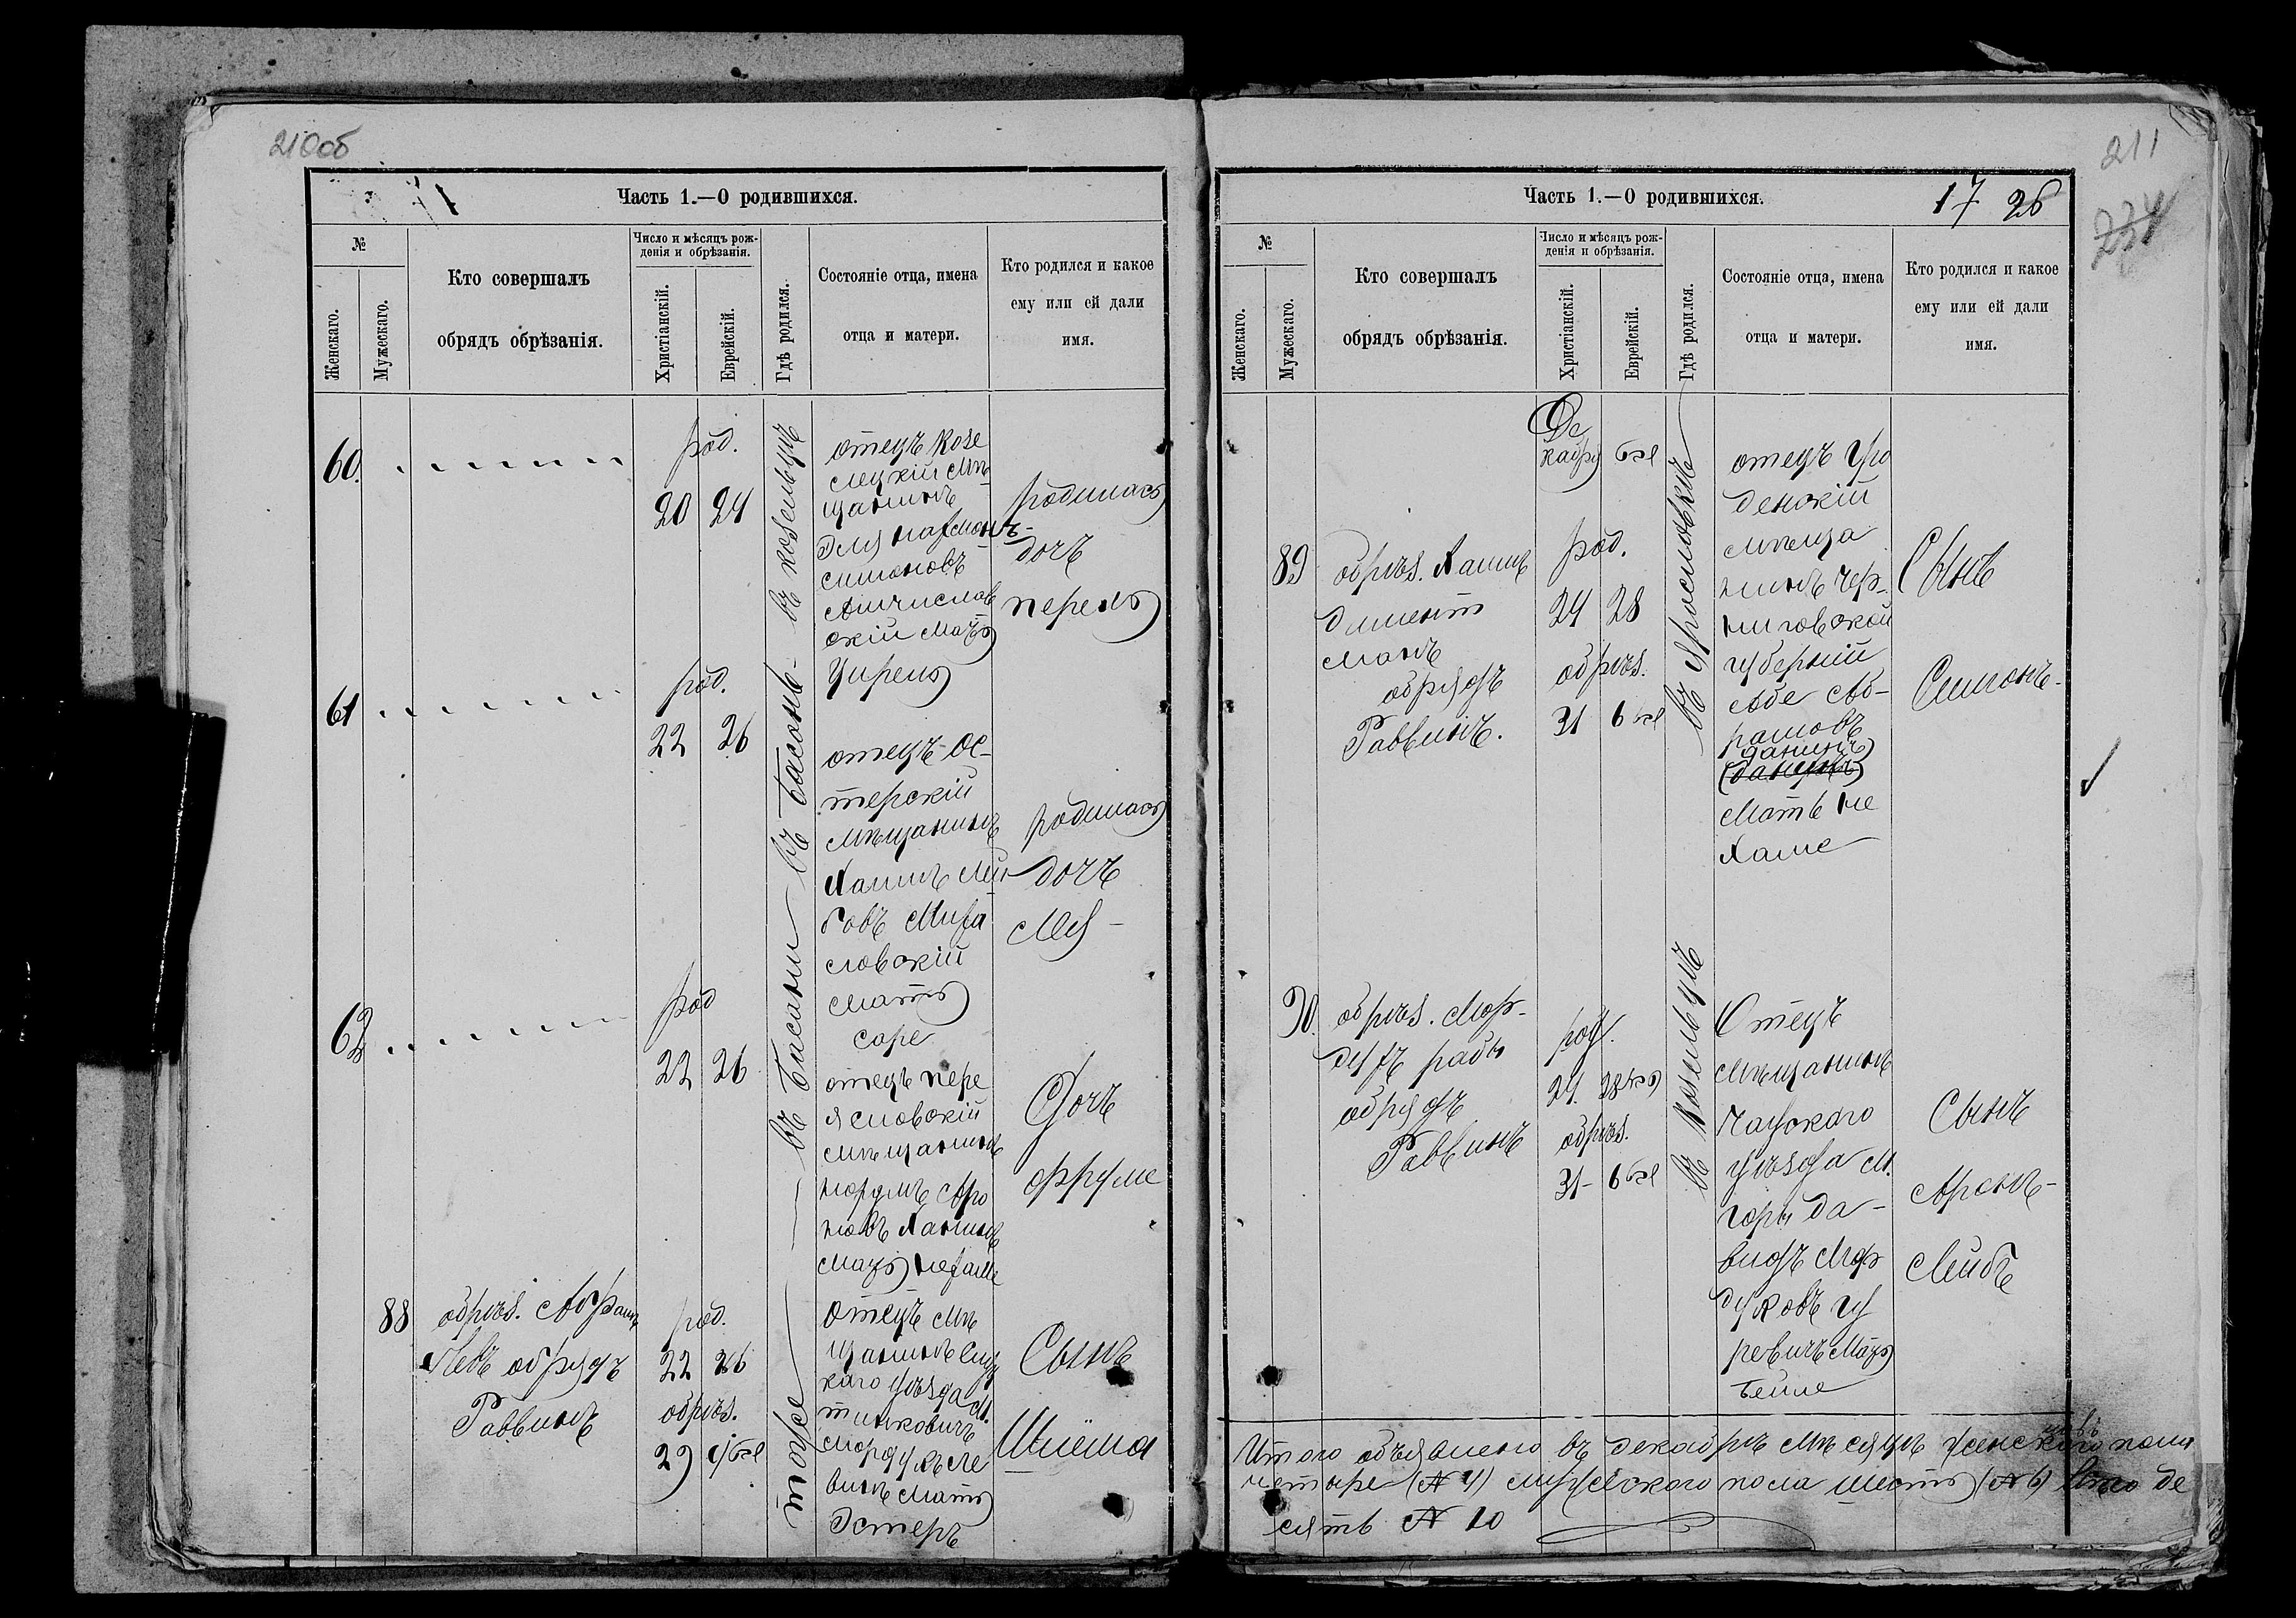 210об
Часть 1.—О родившихся.
№
Женскаго.
Мужескаго.
Кто совершалъ
обрядъ обрѣзанія.
Число и мѣсяцъ рож-
денія и обрѣзанія.
Христіанскій.
Еврейскій.
Гдѣ родился.
Состояніе отца, имена
отца и матери.
Кто родился и какое
ему или ей дали
имя.
60.
род.
20 24
въ Козельцѣ
отецъ Козе
лецкій мѣ
щанинъ
симоновъ
скій мать
Цирель
родилась
дочь
перель
61
род.
22 26
въ Басань
отецъ Ос-
терскій
мѣщанинъ
Хаимъ Лей
бовъ
словскій
мать
саре
родилась
дочь
62
род
22 26
въ Басани
отецъ пере
яславскій
мѣщанинъ
мать
дочь
фруме
88
обрѣз. Абрамъ
Левъ обрядъ
Раввинъ
род.
22 26
обрѣз.
29
тоже
отецъ мѣ
щанинъ
каго уѣзда м.
Мордухъ Ле
винъ мать
Эстеръ
Сынъ
Шлёма
211
234
Часть 1.—О родившихся.
17 26
№
Женскаго.
Мужескаго.
Кто совершалъ
обрядъ обрѣзанія.
Число и мѣсяцъ рож-
денія и обрѣзанія.
Христіанскій.
Еврейскій.
Гдѣ родился.
Состояніе отца, имена
отца и матери.
Кто родился и какое
ему или ей дали
имя.
Де
кабря
89
обрѣз. Хаимъ
Димент
манъ
обрядъ
Раввинъ.
род.
24 28
обрѣз.
31 6
въ Ярославкѣ
отецъ Гро
денскій
мѣща
нинъ Чер-
ниговской
губерніи
Аб-
рамовъ
Данинъ
мать Не
хаме
Сынъ
Симонъ-
90.
обрѣз. Мор-
духъ
обрядъ
Раввинъ
род.
24. 28
обрѣз.
31- 6
въ Козельцѣ
Отецъ
мѣщанинъ
Чаускаго
уѣзда м.
горы Да-
видъ Мор
духовъ Гу
ревичъ мать
Бейле
Сынъ
Аронъ-
Лейбъ
Итого объявлено въ декабрѣ мѣсяцѣ женскаго пола
четыре (№ 4) мужескаго пола шесть (№ 6) всего де
сять № 10